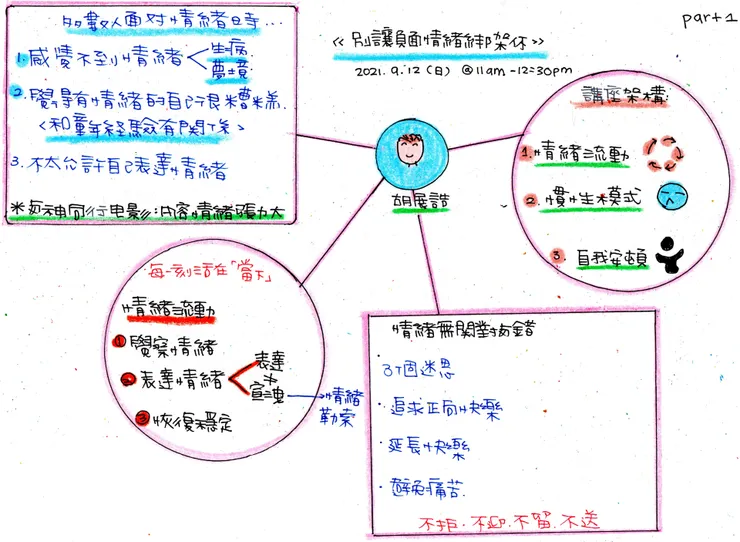 part 1
《別讓負面情緒綁架你》
2021.9.12(日) @11am-12:30pm
多數人面對情緒時...
1.感覺不到情緒
生病
夢境
2.覺得有情緒的自己很糟糕.
<和童年經驗有關係>
3.不太允許自己表達情緒
*与神同行电影:內容情緒張力大
胡展誥
講座架構:
1.情緒流動
2.慣性模式
3.自我安頓
每一刻活在「當下」
情緒流動
1 覺察情緒
2 表達情緒
表達
≠
宣洩
情緒
勒索
3 恢復穩定
情緒無關對与錯
3個迷思
·追求正向快樂
·延長快樂
·避免痛苦.
不拒.不迎.不留.不送